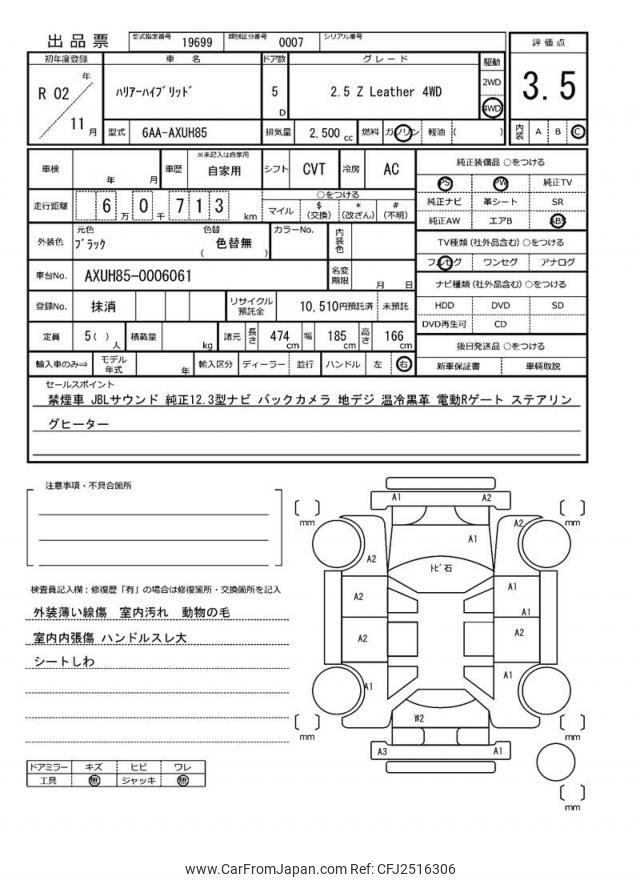 出品票
型式指定番号 19699 類別区分番号 0007 シリアル番号
初年度登録 車 名 ドア数 グレード 駆動 評価点
R 02 年 11 月
ハリアーハイブリッド
5 D
2.5 Z Leather 4WD
2WD
4WD
3.5
型式 6AA-AXUH85 排気量 2,500 cc 燃料 ガソリン 軽油 ( )
内装 A B C
車検 年 月 車歴 ※未記入は自家用 自家用 シフト CVT 冷房 AC
走行距離 6 万 0 千 7 1 3 km
○をつける
マイル $ (交換) * (改ざん) # (不明)
外装色 元色 ブラック 色替 色替無 ( ) カラーNo. 内装色
車台No. AXUH85-0006061 名変期限 月 日
登録No. 抹消 リサイクル預託金 10,510円預託済 未預託
定員 5( ) 人 積載量 kg 諸元 長さ 474 cm 幅 185 cm 高さ 166 cm
輸入車のみ⇒ モデル年式 年 輸入区分 ディーラー 並行 ハンドル 左 右
純正装備品 ○をつける
PS PW 純正TV
純正ナビ 革シート SR
純正AW エアB ABS
TV種類(社外品含む)○をつける
フルセグ ワンセグ アナログ
ナビ種類(社外品含む)○をつける
HDD DVD SD
DVD再生可 CD
後日発送品 ○をつける
新車保証書 車輌取説
セールスポイント
禁煙車 JBLサウンド 純正12.3型ナビ バックカメラ 地デジ 温冷黒革 電動Rゲート ステアリン
グヒーター
注意事項・不具合箇所
検査員記入欄：修復歴「有」の場合は修復箇所・交換箇所を記入
外装薄い線傷 室内汚れ 動物の毛
室内内張傷 ハンドルスレ大
シートしわ
ドアミラー キズ ヒビ ワレ
工具 無 ジャッキ 無
A1 A2
mm mm
A1 A2
A2
トビ石
A2 A1
A1
A2 A2
A1 A1
W2
mm mm
A3 A1
mm
www.CarFromJapan.com Ref: CFJ2516306